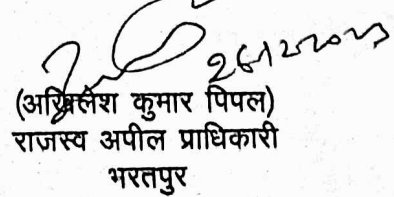 26/12/2023
(अखिलेश कुमार पिपल)
राजस्व अपील प्राधिकारी
भरतपुर